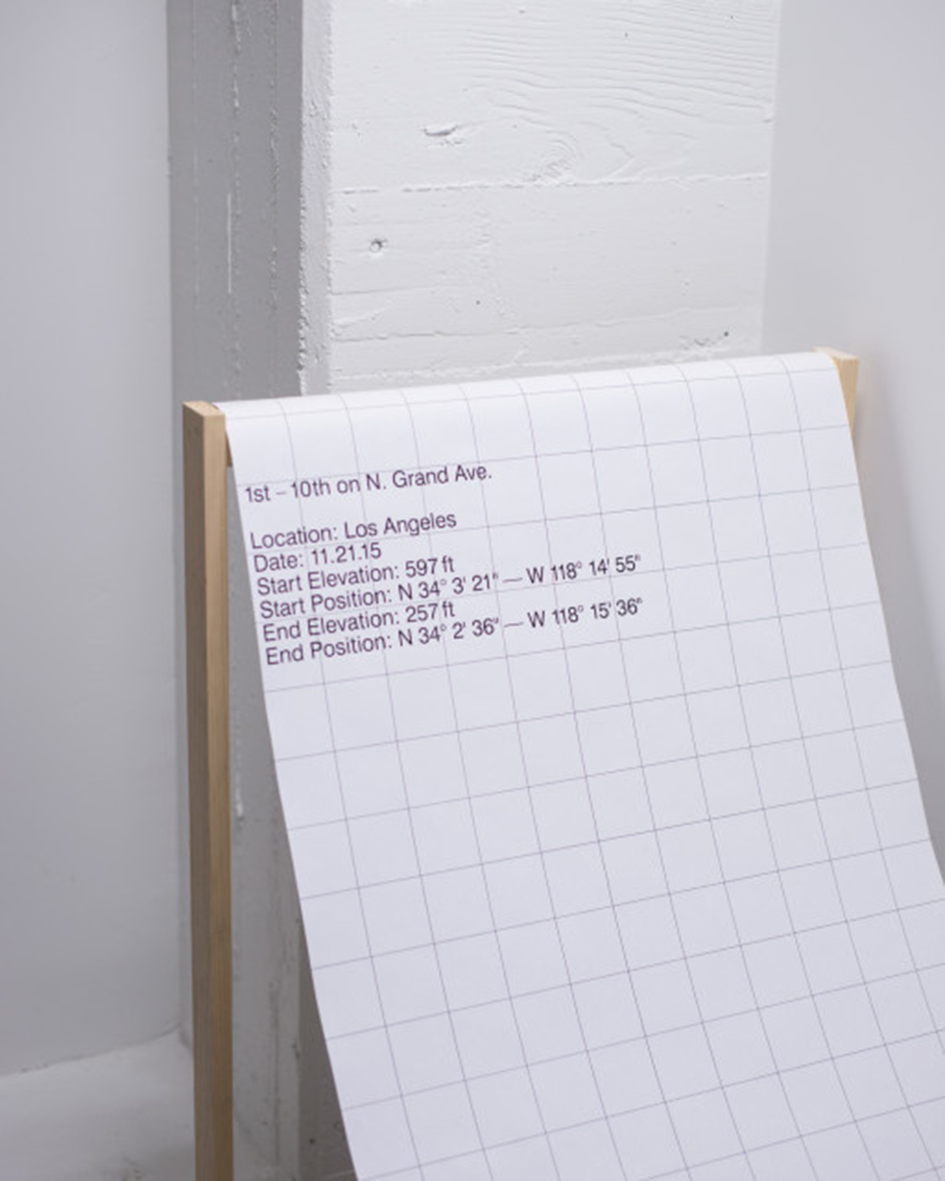 1st – 10th on N. Grand Ave.
Location: Los Angeles
Date: 11.21.15
Start Elevation: 597 ft
Start Position: N 34° 3' 21" — W 118° 14' 55"
End Elevation: 257 ft
End Position: N 34° 2' 36" — W 118° 15' 36"